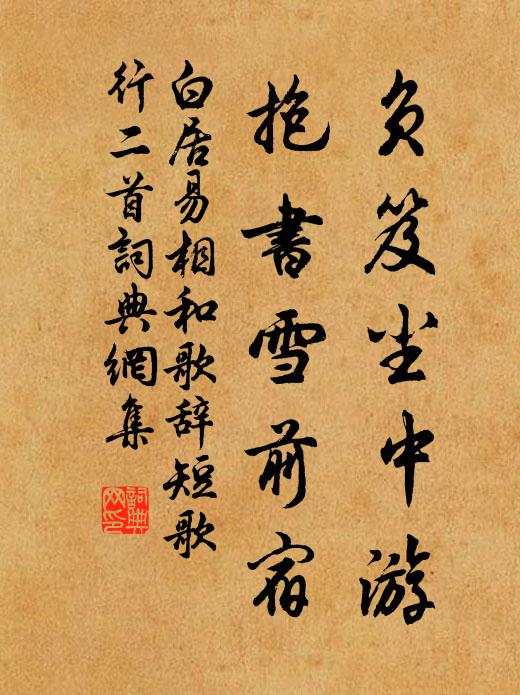 负笈尘中游
抱書雪前宿
白居易相和歌辞短歌
行二首詞典網集
詞典
网印